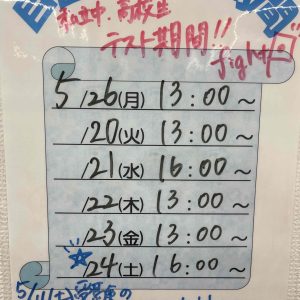 中・高校生
テスト期間!!
fight!
5/26(月) 13:00~
/20(火) 13:00~
/21(水) 16:00~
/22(木) 13:00~
/23(金) 13:00~
☆/24(土) 16:00~
5/11(土)